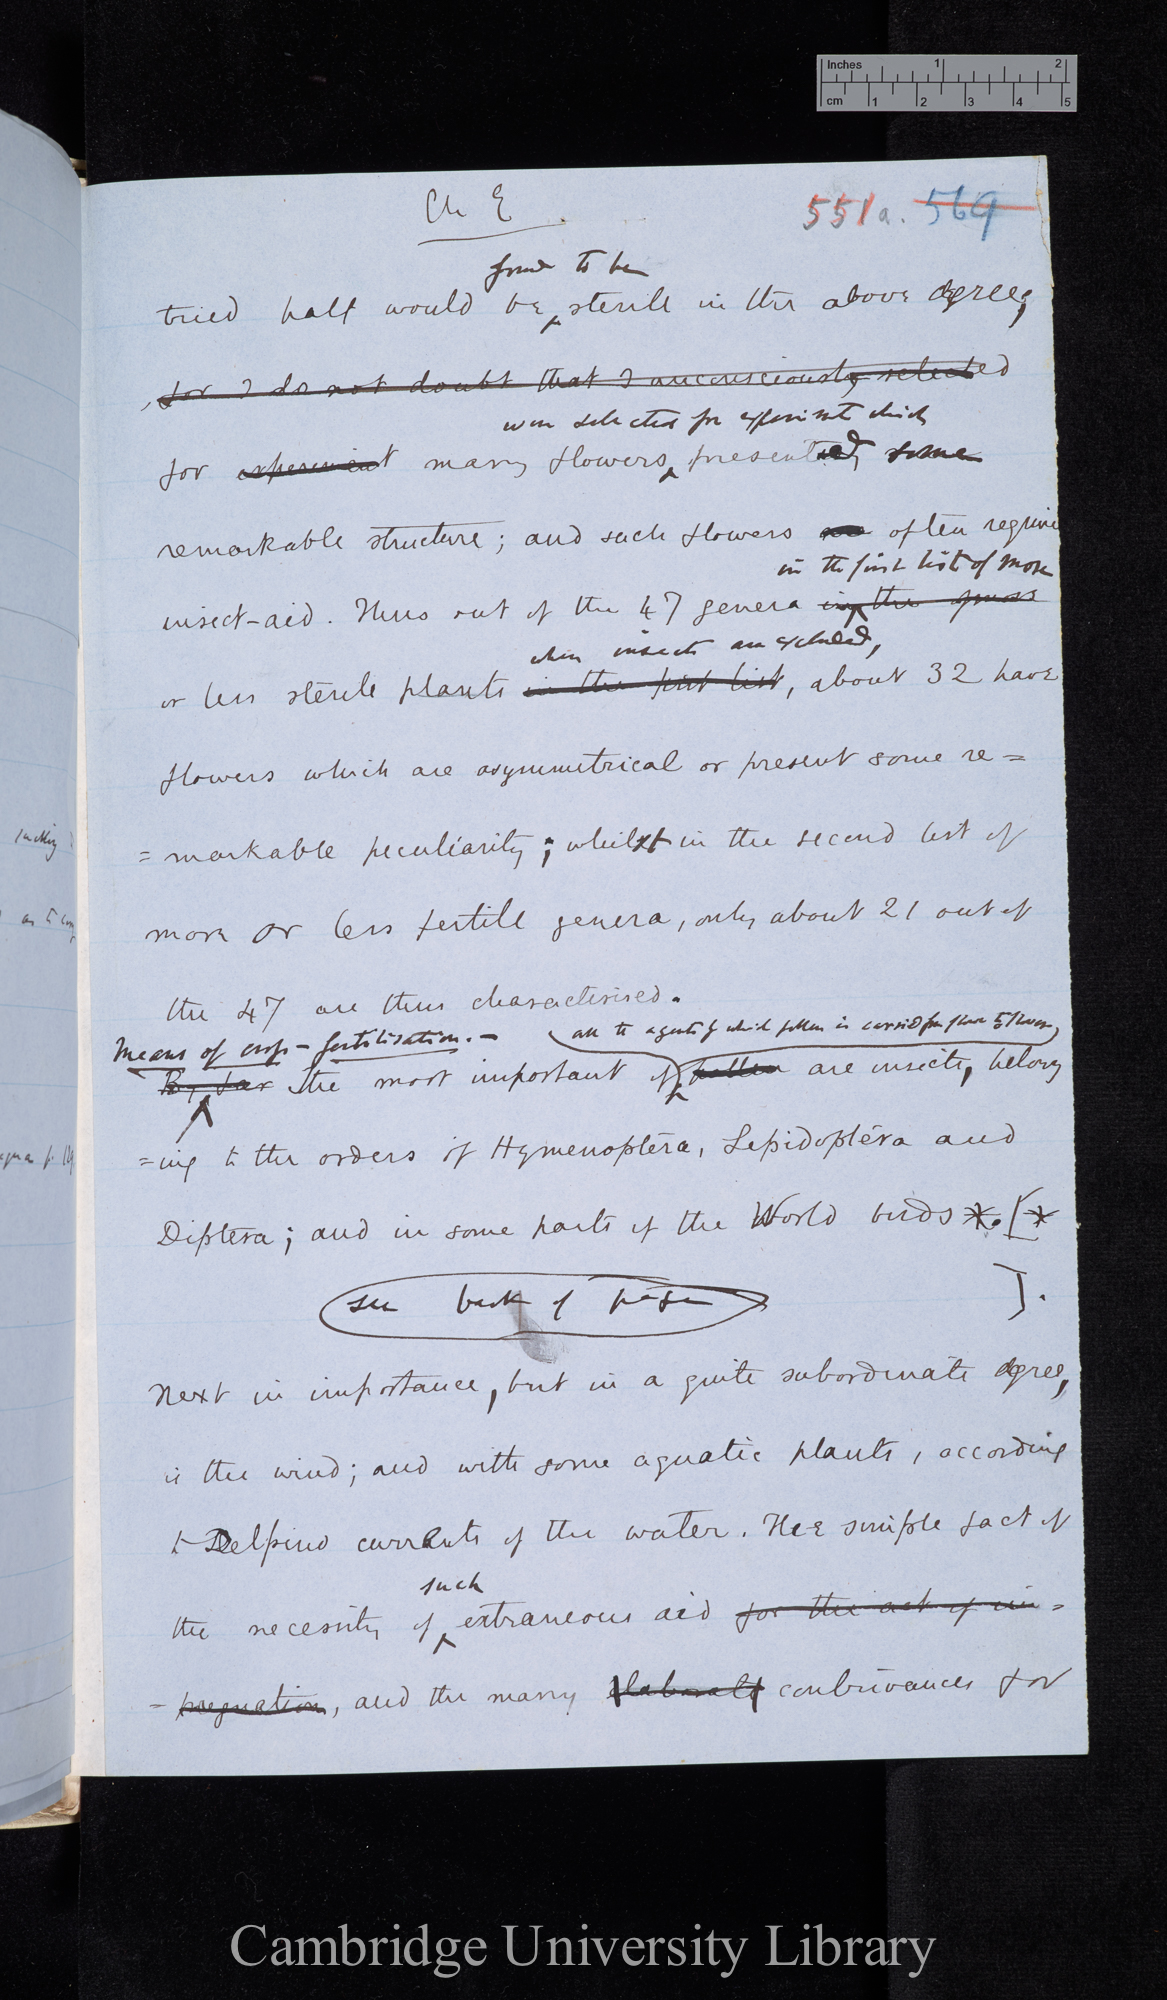 Inches 1 2
cm 1 2 3 4 5
Ch E
551a. 569
found to be
tried half would be sterile in the above degree;
for I do not doubt that I unconsciously selected
were selected for experiment which
for experiment many flowers presented some
remarkable structure; and such flowers often require
in the first list of more
insect-aid. Thus out of the 47 genera in the
when insects are excluded,
or less sterile plants in the first list, about 32 have
flowers which are asymmetrical or present some re=
=markable peculiarity; whilst in the second list of
more or less fertile genera, only about 21 out of
the 47 are thus characterised.
Means of cross-fertilisation.-
all the agents by which pollen is carried from flower to flower
By far the most important of pollen are insects, belong
=ing to the orders of Hymenoptera, Lepidoptera and
Diptera; and in some parts of the World birds *. [*
see back of page ].
Next in importance, but in a quite subordinate degree,
is the wind; and with some aquatic plants, according
to Delpino currents of the water. The simple fact of
such
the necessity of extraneous aid for the act of im=
=pregnation, and the many elaborate contrivances for
sucking
Cambridge University Library